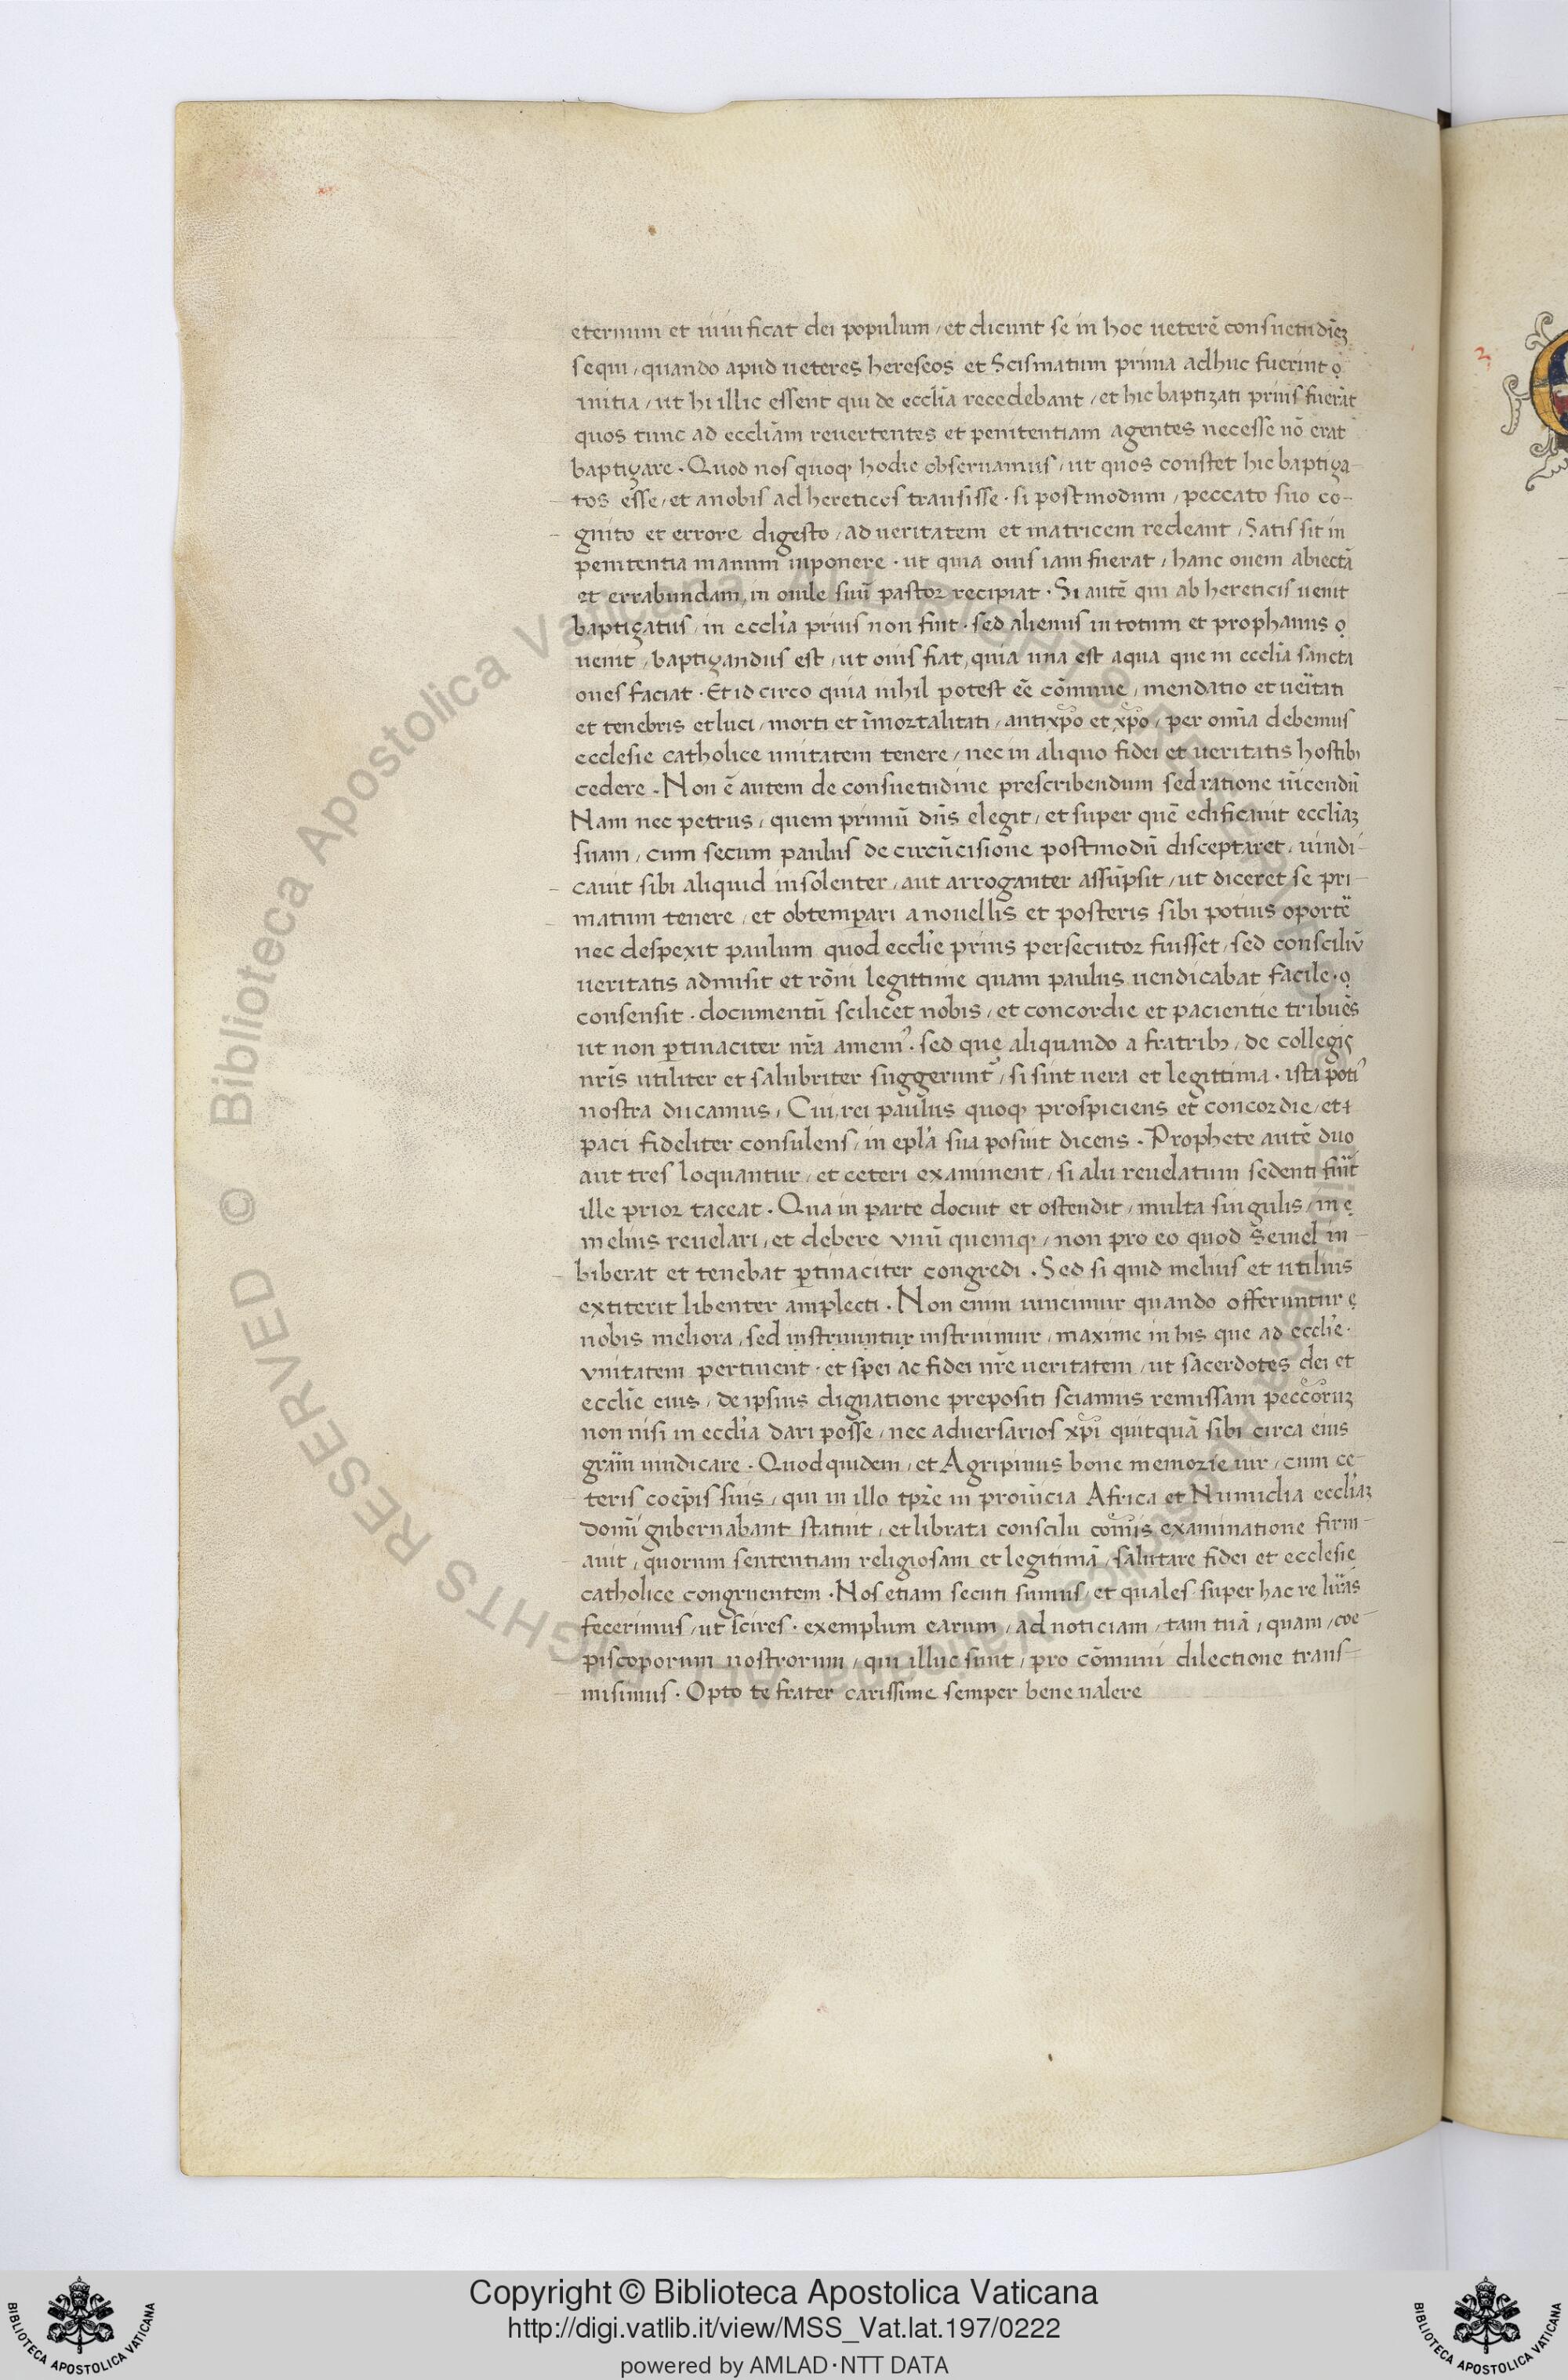 eternum et uiuificat dei populum / et dicunt se in hoc ueterē consuetudīez
sequi / quando apud ueteres hereseos et Scismatum prima adhuc fuerint ọ
initia / ut hi illic essent qui de ecclīa recedebant / et hic baptizati prius fuerāt
quos tunc ad ecclīam reuertentes et penitentiam agentes necesse nō erat
baptizare · Quod nos quoqꝫ hodie obseruamus / ut quos constet hic baptiza-
tos esse / et a nobis ad hereticos transisse · si postmodum / peccato suo co-
gnito et errore digesto / ad ueritatem et matricem redeant / Satis sit in
penitentia manum inponere · ut quia ouis iam fuerat / hanc ouem abiectā
et errabundam / in ouile suū pastor recipiat · Si autē qui ab hereticis uenit
baptizatus / in ecclīa prius non fuit · sed alienus in totum et prophanus ọ
uenit / baptizandus est / ut ouis fiat / quia una est aqua que in ecclīa sancta
oues faciat · Et id circo quia nihil potest eē cōmune / mendatio et ueītati
et tenebris et luci / morti et īmortalitati / antixp̄o et xp̄o / per omīa debemus
ecclesie catholice unitatem tenere / nec in aliquo fidei et ueritatis hostibꝫ
cedere · Non ē autem de consuetudine prescribendum sed ratione uīcendū
Nam nec petrus / quem primū dn̄s elegit / et super quē edificauit ecclīaꝫ
suam / cum secum paulus de circūcisione postmodū disceptaret / uindi-
cauit sibi aliquid insolenter / aut arroganter assūpsit / ut diceret se pri-
matum tenere / et obtemꝑari a nouellis et posteris sibi potius oportē
nec despexit paulum quod ecclīe prius persecutor fuisset / sed consciliū
ueritatis admisit et rōni legittime quam paulus uendicabat facile · ọ
consensit · documentū scilicet nobis / et concordie et pacientie tribuēs
ut non ꝑtinaciter nr̄a amemꝰ · sed que aliquando a fratribꝫ / de collegis
nr̄is utiliter et salubriter suggerunt᷑ / si sint uera et legittima · ista potiꝰ
nostra ducamus / Cui rei paulus quoqꝫ prospiciens et concordie / et
paci fideliter consulens / in epl̄a sua posuit dicens · Prophete autē duo
aut tres loquantur / et ceteri examinent / si alii reuelatum sedenti fuīt
ille prior taceat · Qua in parte docuit et ostendit / multa singulis / in ẹ
melius reuelari / et debere unū quemqꝫ / non pro eo quod semel in-
biberat et tenebat ꝑtinaciter congredi · Sed si quid melius et utilius
extiterit libenter amplecti · Non enim uincimur quando offeruntur ẹ
nobis meliora / sed instruuntur instruimur / maxime in his que ad ecclīe ·
unitatem pertinent · et spei ac fidei nr̄e ueritatem / ut sacerdotes dei et
ecclīe eius / de ipsius dignatione prepositi sciamus remissam peccōruꝫ
non nisi in ecclīa dari posse / nec aduersarios xp̄i quitquā sibi circa eius
grām uindicare · Quod quidem / et Agripinus bone memorie uir / cum ce-
teris coep̄is suis / qui in illo tp̄re in prouīcia Africa et Numidia ecclīaꝫ
domī gubernabant statuit / et librata conscilii cōmuis examinatione firm-
auit / quorum sententiam religiosam et legitimā / salutare fidei et ecclesie
catholice congruentem · Nos etiam secuti sumus / et quales super hac re līras
fecerimus / ut scires · exemplum earum / ad noticiam / tam tuā / quam / coe-
piscoporum nostrorum / qui illuc sunt / pro cōmuni dilectione trans-
misimus · Opto te frater carissime semper bene ualere
3
© Biblioteca Apostolica Vaticana
ALL RIGHTS RESERVED
Copyright © Biblioteca Apostolica Vaticana
http://digi.vatlib.it/view/MSS_Vat.lat.197/0222
powered by AMLAD·NTT DATA
BIBLIOTECA APOSTOLICA VATICANA
BIBLIOTECA APOSTOLICA VATICANA